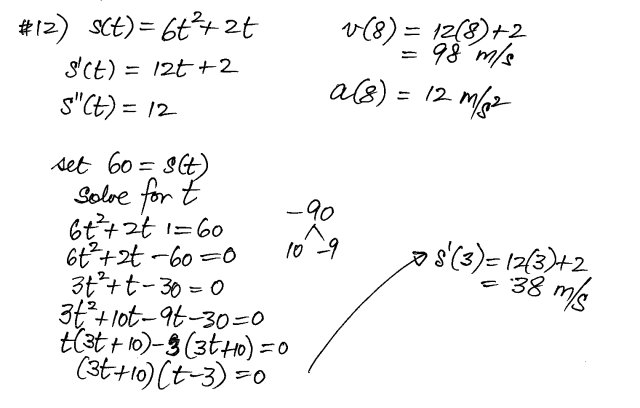 #12) s(t) = 6t²+2t
s'(t) = 12t+2
s"(t) = 12
v(8) = 12(8)+2
= 98 m/s
a(8) = 12 m/s²
set 60 = s(t)
solve for t
6t²+2t 1=60
6t²+2t-60=0
3t²+t-30=0
3t²+10t-9t-30=0
t(3t+10)-3(3t+10)=0
(3t+10)(t-3)=0
-90
10 -9
s'(3)=12(3)+2
= 38 m/s